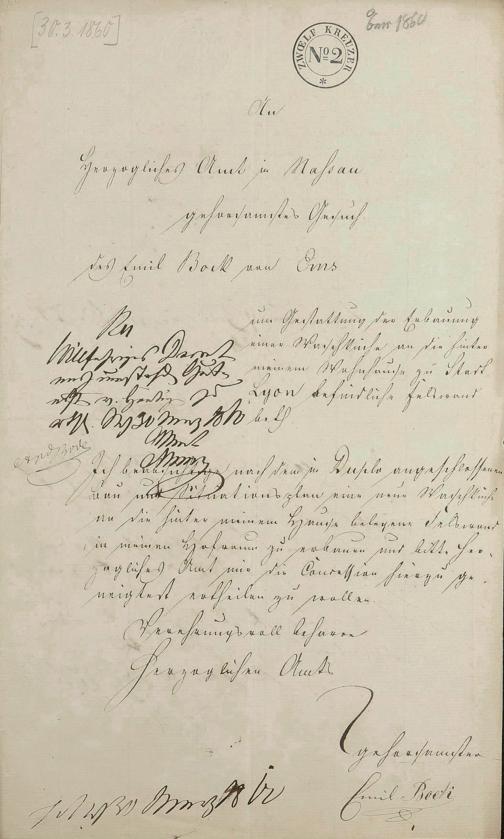 [30.3.1860]
Ems 1860
ZWŒLF KREUZER
No 2
An
Herzogliches Amt in Nassau
gehorsamstes Gesuch
des Emil Bock von Ems
um Gestattung der Erbauung
einer Waschküche an die hinter
meinem Wohnhause zu Stadt
Lyon befindliche Felswand
betr
30 März 1860
Amt
Ich beabsichtige nach dem in Duplo angeschlossenen
Bau und Situationsplan eine neue Waschküche
an die hinter meinem Hause belegene Felswand
in meinem Hofraum zu erbauen und bitte Her-
zogliches Amt mir die Concession hierzu ge-
neigtest ertheilen zu wollen.
Verehrungsvoll beharre
Herzoglichen Amts
gehorsamster
Emil
30 März 18